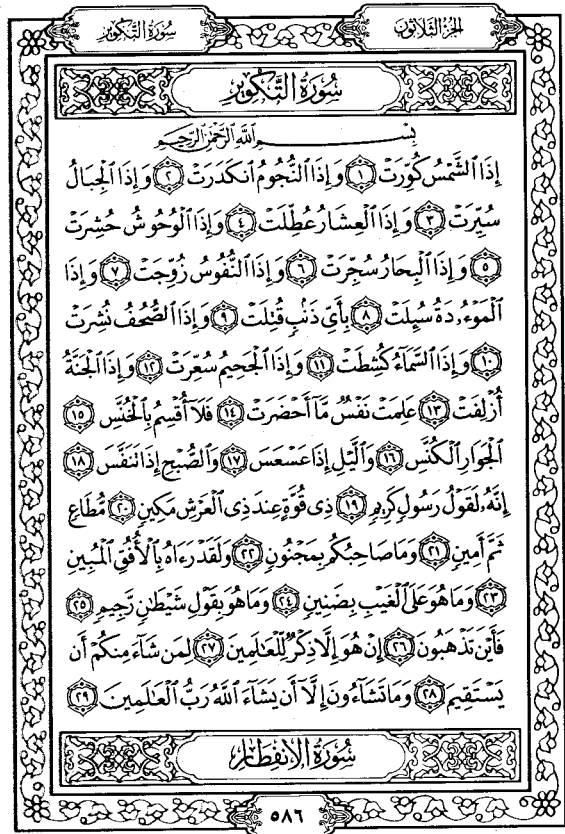 سُورَةُ التَّكْوِير
الجُزْءُ الثَّلَاثُون
سُورَةُ التَّكْوِير
بِسْمِ ٱللَّهِ ٱلرَّحْمَٰنِ ٱلرَّحِيمِ
إِذَا ٱلشَّمْسُ كُوِّرَتْ ١ وَإِذَا ٱلنُّجُومُ ٱنكَدَرَتْ ٢ وَإِذَا ٱلْجِبَالُ
سُيِّرَتْ ٣ وَإِذَا ٱلْعِشَارُ عُطِّلَتْ ٤ وَإِذَا ٱلْوُحُوشُ حُشِرَتْ
٥ وَإِذَا ٱلْبِحَارُ سُجِّرَتْ ٦ وَإِذَا ٱلنُّفُوسُ زُوِّجَتْ ٧ وَإِذَا
ٱلْمَوْءُۥدَةُ سُئِلَتْ ٨ بِأَيِّ ذَنۢبٍ قُتِلَتْ ٩ وَإِذَا ٱلصُّحُفُ نُشِرَتْ
١٠ وَإِذَا ٱلسَّمَآءُ كُشِطَتْ ١١ وَإِذَا ٱلْجَحِيمُ سُعِّرَتْ ١٢ وَإِذَا ٱلْجَنَّةُ
أُزْلِفَتْ ١٣ عَلِمَتْ نَفْسٌ مَّآ أَحْضَرَتْ ١٤ فَلَآ أُقْسِمُ بِٱلْخُنَّسِ ١٥
ٱلْجَوَارِ ٱلْكُنَّسِ ١٦ وَٱلَّيْلِ إِذَا عَسْعَسَ ١٧ وَٱلصُّبْحِ إِذَا تَنَفَّسَ ١٨
إِنَّهُۥ لَقَوْلُ رَسُولٍ كَرِيمٍ ١٩ ذِى قُوَّةٍ عِندَ ذِى ٱلْعَرْشِ مَكِينٍ ٢٠ مُّطَاعٍ
ثَمَّ أَمِينٍ ٢١ وَمَا صَاحِبُكُم بِمَجْنُونٍ ٢٢ وَلَقَدْ رَءَاهُ بِٱلْأُفُقِ ٱلْمُبِينِ
٢٣ وَمَا هُوَ عَلَى ٱلْغَيْبِ بِضَنِينٍ ٢٤ وَمَا هُوَ بِقَوْلِ شَيْطَٰنٍ رَّجِيمٍ ٢٥
فَأَيْنَ تَذْهَبُونَ ٢٦ إِنْ هُوَ إِلَّا ذِكْرٌ لِّلْعَٰلَمِينَ ٢٧ لِمَن شَآءَ مِنكُمْ أَن
يَسْتَقِيمَ ٢٨ وَمَا تَشَآءُونَ إِلَّآ أَن يَشَآءَ ٱللَّهُ رَبُّ ٱلْعَٰلَمِينَ ٢٩
سُورَةُ الانفِطَار
٥٨٦